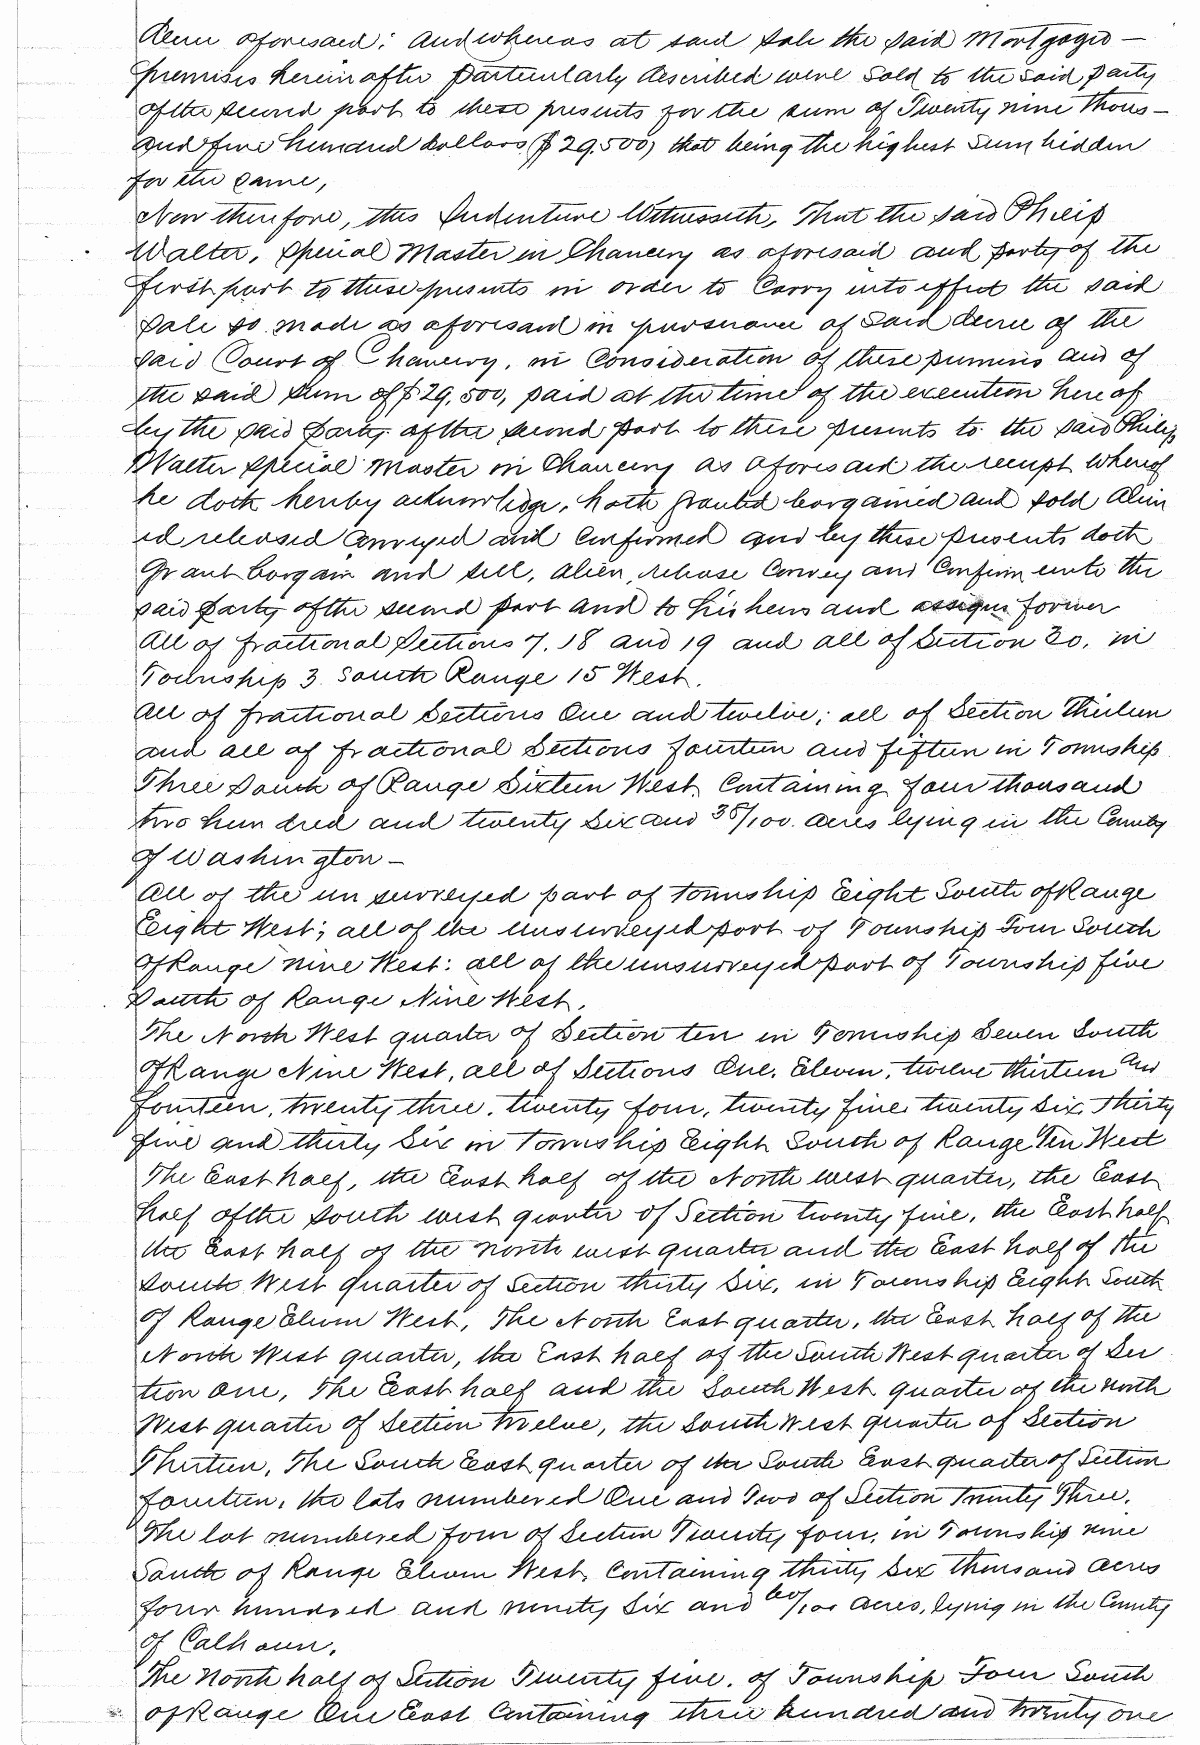 decree aforesaid; and whereas at said sale the said Mortgaged —
premises hereinafter particularly described were sold to the said party
of the second part to these presents for the sum of Twenty nine thous-
and five hundred dollars ($29.500) that being the highest sum bidden
for the same,
Now therefore, this Indenture Witnesseth, That the said Philip
Walter, Special Master in Chancery as aforesaid and party of the
first part to these presents in order to Carry into effect the said
Sale so made as aforesaid in pursuance of said decree of the
said Court of Chancery, in consideration of these premises and of
the said sum of $29,500, paid at the time of the execution here of
by the said party of the second part to these presents to the said Philip
Walter Special Master in Chancery as aforesaid the receipt whereof
he doth hereby acknowledge, hath granted bargained and sold alien
ed released conveyed and confirmed and by these presents doth
grant bargain and sell, alien, release Convey and Confirm unto the
said party of the second part and to his heirs and assigns forever
All of fractional Sections 7, 18 and 19 and all of Section 30, in
Township 3 South Range 15 West.
All of fractional Sections One and twelve; all of Section thirteen
and all of fractional Sections fourteen and fifteen in Township
Three South of Range Sixteen West, Containing four thousand
two hundred and twenty Six and 38/100 acres lying in the County
of Washington —
All of the un surveyed part of township Eight South of Range
Eight West; all of the unsurveyed part of Township Four South
of Range nine West: all of the unsurveyed part of Township five
South of Range Nine West.
The North West quarter of Section ten in Township Seven South
of Range Nine West, all of Sections One, Eleven, twelve thirteen and
fourteen, twenty three, twenty four, twenty five, twenty Six, Thirty
five and thirty Six in Township Eight South of Range Ten West
The East half, the East half of the North west quarter, the East
half of the south west quarter of Section twenty five, the East half
the East half of the north west quarter and the East half of the
South West quarter of Section thirty Six, in Township Eight South
of Range Eleven West, The North East quarter, the East half of the
North West quarter, the East half of the South West quarter of Sec
tion One, The East half and the South West quarter of the North
West quarter of Section Twelve, the South West quarter of Section
Thirteen, The South East quarter of the South East quarter of Section
fourteen, the lots numbered One and Two of Section Twenty Three,
The lot numbered four of Section Twenty four, in Township nine
South of Range Eleven West, Containing thirty Six thousand acres
four hundred and ninety Six and 60/100 acres, lying in the County
of Calhoun.
The North half of Section Twenty five, of Township Four South
of Range One East Containing three hundred and twenty one